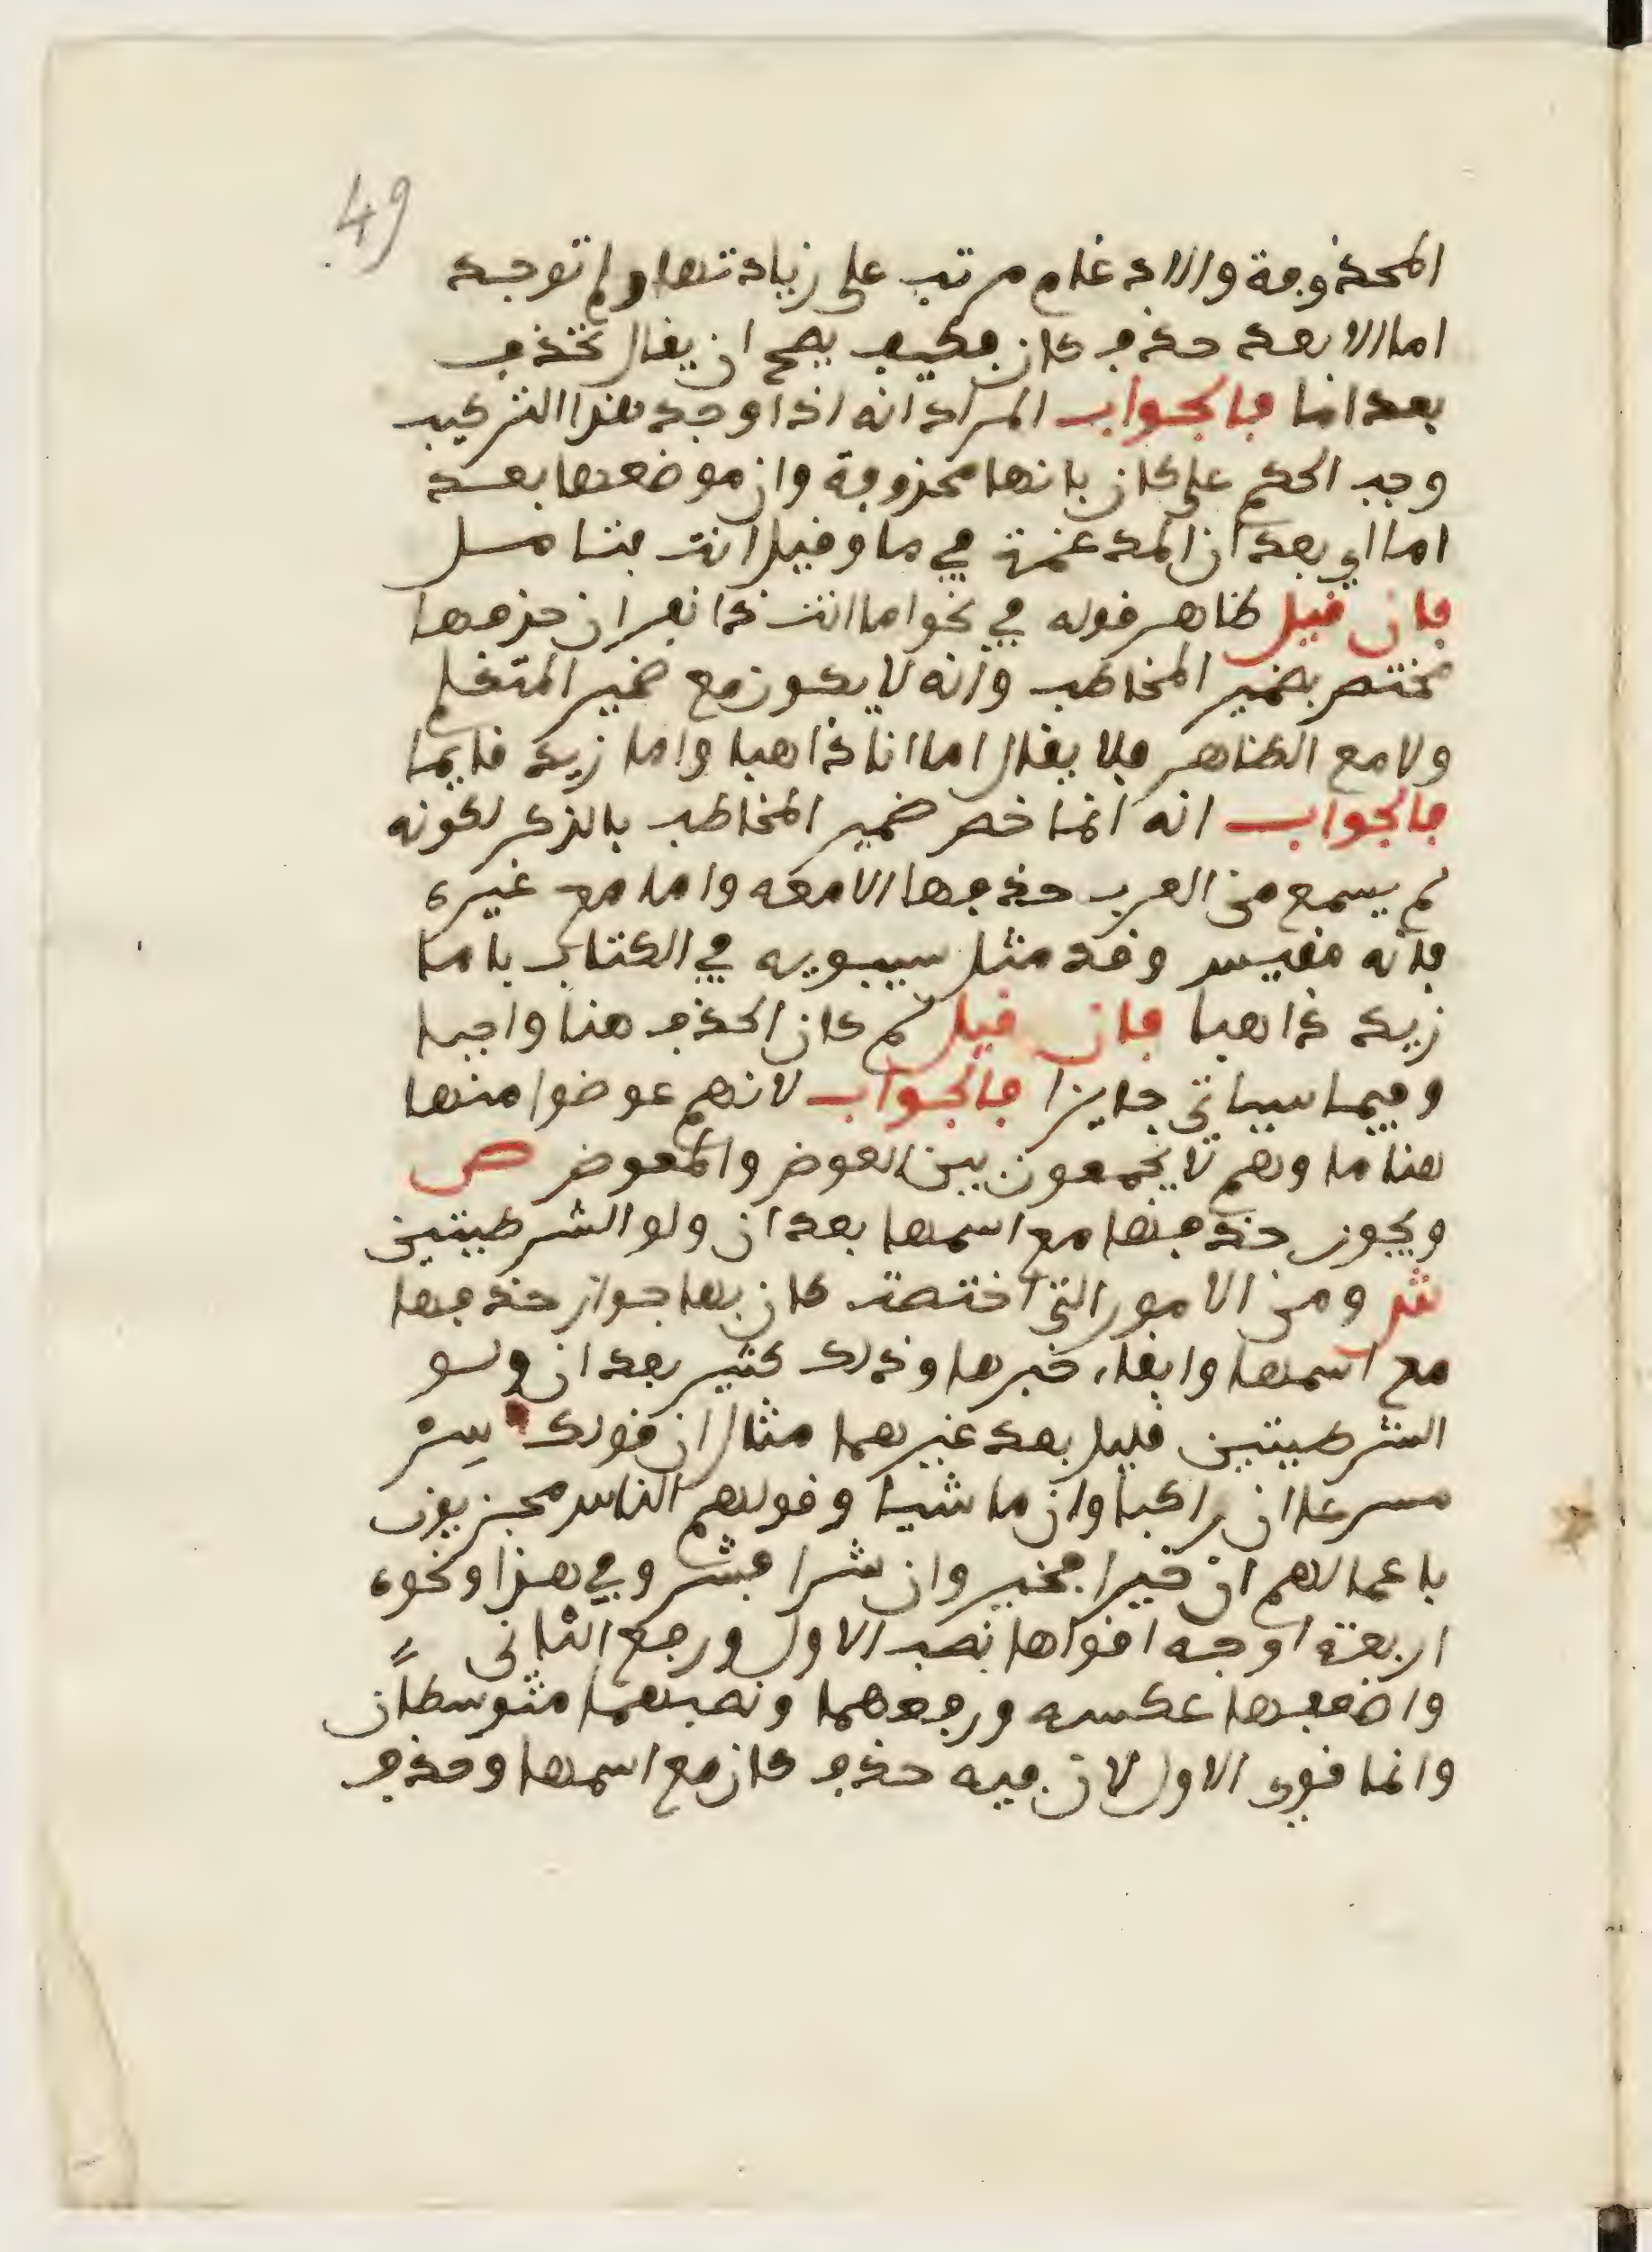 49
المحذوفة والادغام مرتب على زيادتها ولم توجد
اما الا بعد حذف كان فكيف يصح ان يقال تحذف
بعد اما فالجواب المراد انه اذا وجد هذا التركيب
وجب الحكم على كان بانها محذوفة وان موضعها بعد
اما اي بعد ان المدغمة في ما وقيل انت فتامل
فان قيل ظاهر قوله في نحو اما انت ذا نفر ان حذفها
مختص بضمير المخاطب وانه لا يكون مع ضمير المتكلم
ولا مع الظاهر فلا يقال اما انا ذاهبا واما زيد قايما
فالجواب انه انما خص ضمير المخاطب بالذكر لكونه
لم يسمع من العرب حذفها الا معه واما مع غيره
فانه مقيس وقد مثل سيبويه في الكتاب باما
زيد ذاهبا فان قيل لم كان الحذف هنا واجبا
وفيما سياتي جايزا فالجواب لانهم عوضوا منها
هنا ما وهم لا يجمعون بين العوض والمعوض ص
ويجوز حذفها مع اسمها بعد ان ولو الشرطيتين
ش ومن الامور التي اختصت كان بها جواز حذفها
مع اسمها وابقاء خبرها وذلك كثير بعد ان ولو
الشرطيتين قليل بعد غيرهما مثال ان قولك سِرْ
مسرعا ان راكبا وان ماشيا وقولهم الناس مجزيون
باعمالهم ان خيرا فخير وان شرا فشر وفي هذا ونحوه
اربعة اوجه اقواها نصب الاول ورفع الثاني
واضعفها عكسه ورفعهما ونصبهما متوسطان
وانما قوي الاول لان فيه حذف كان مع اسمها وحذف